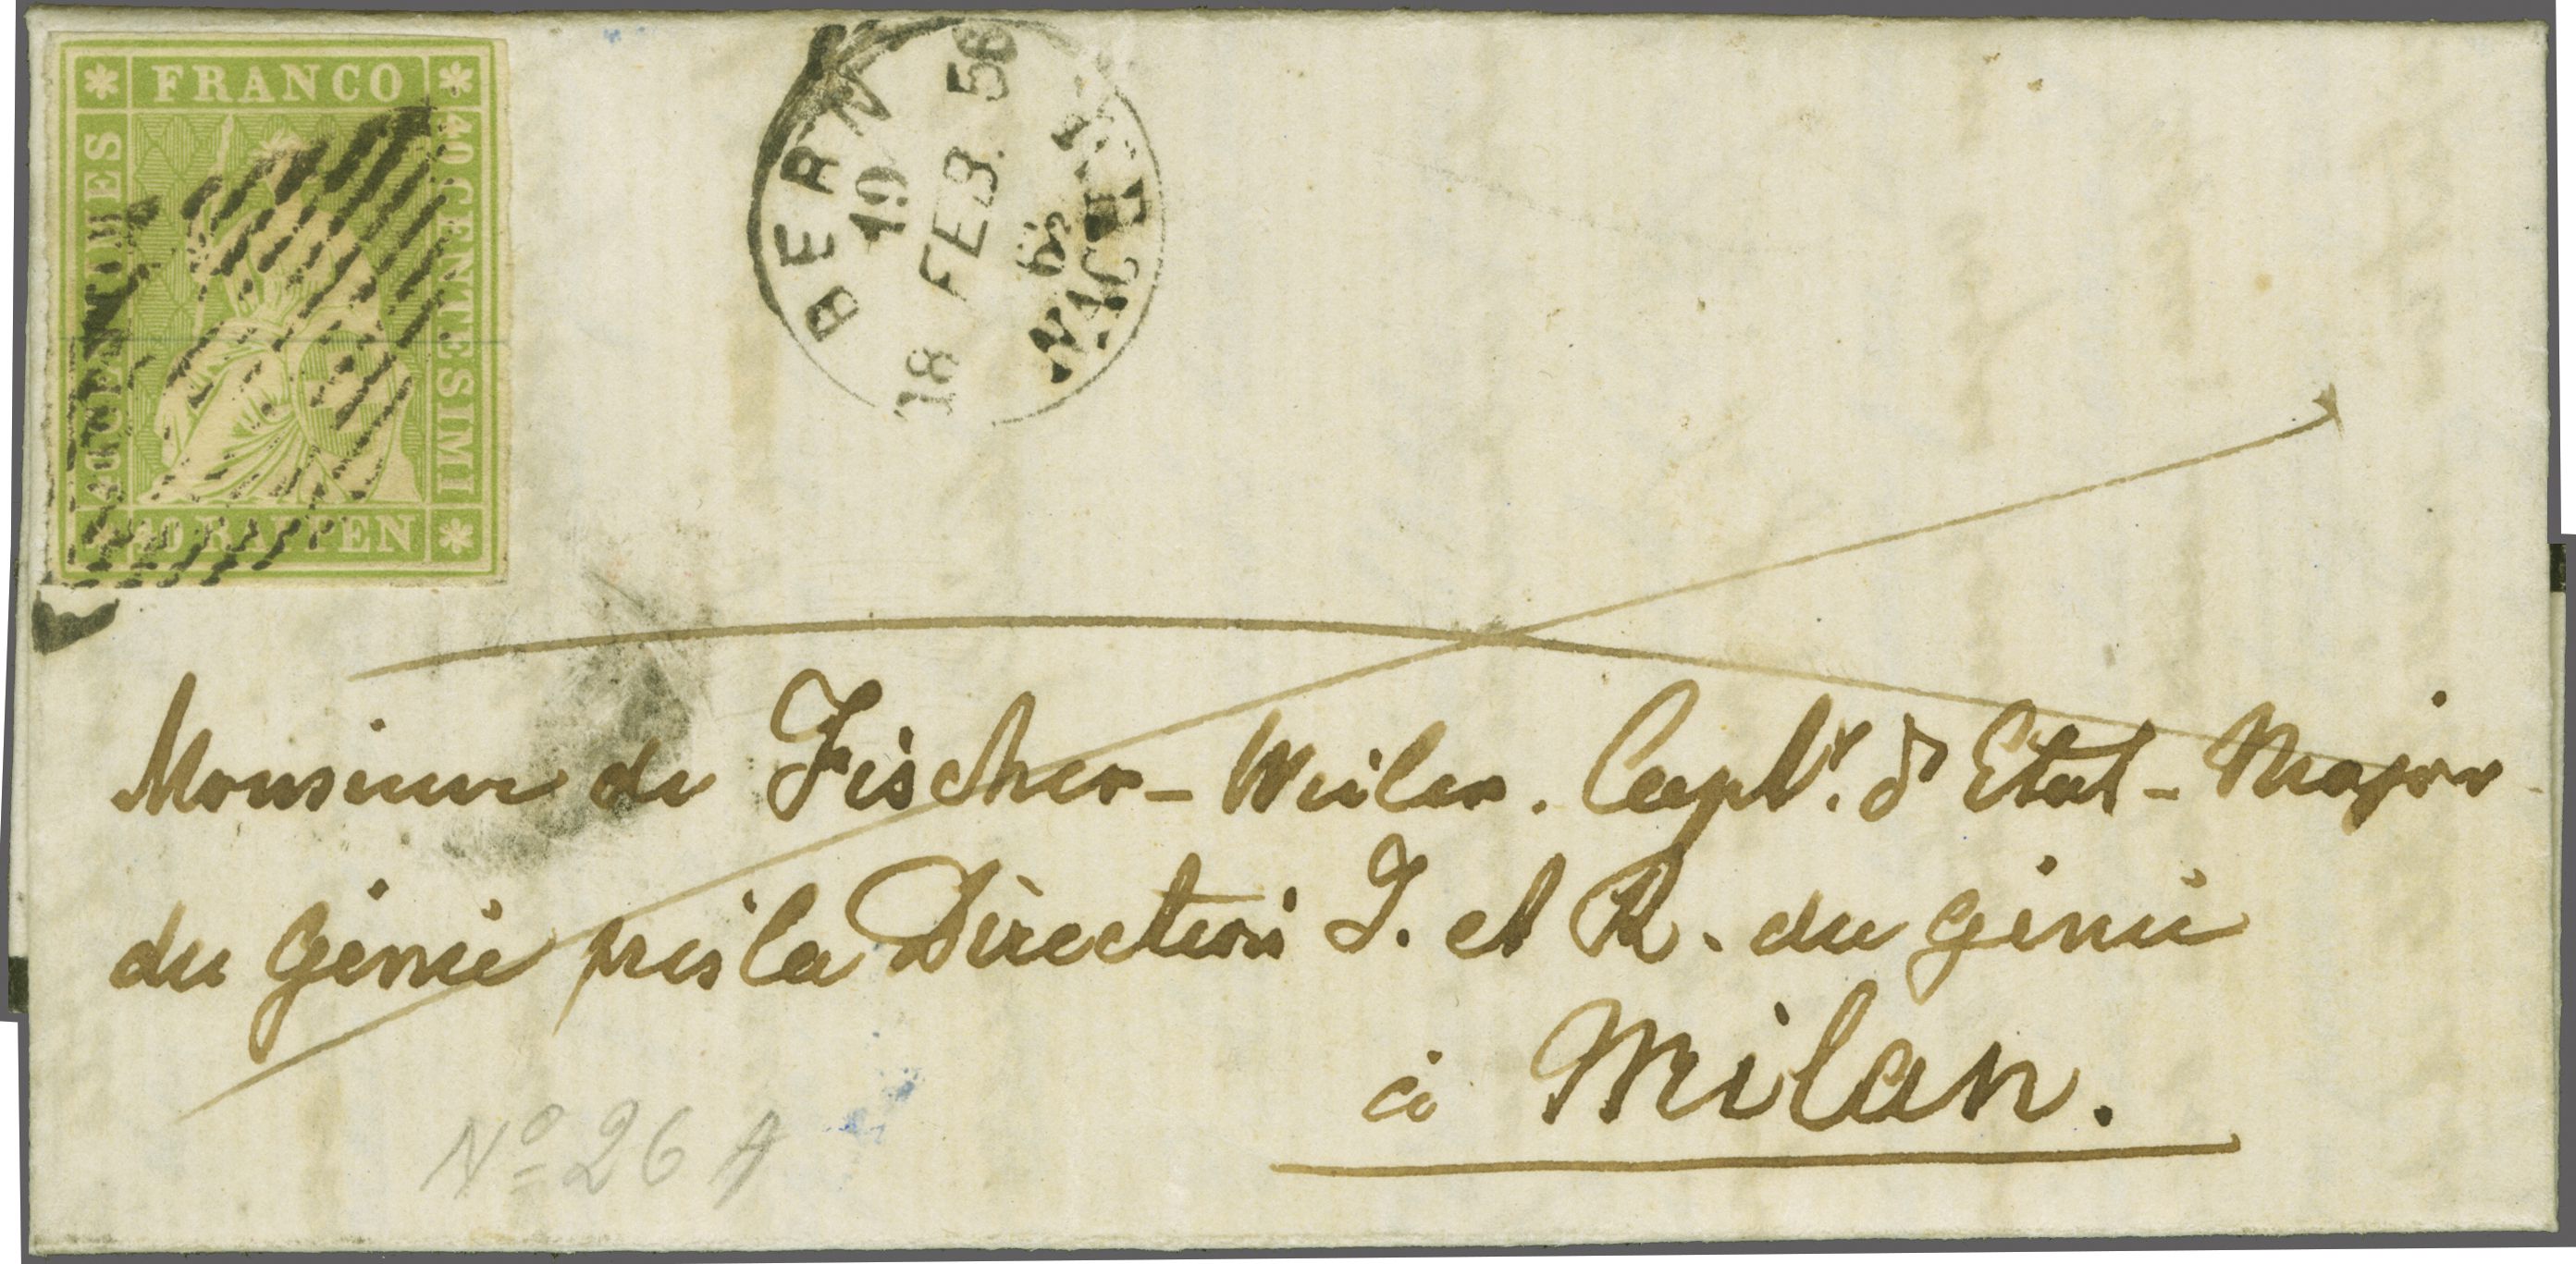 FRANCO
40 CENTIMES
40 CENTESIMI
40 RAPPEN
BERN
19
18 FEB. 56
NACHT
Monsieur de Fischer-Weiler. Capt. d'Etat-Major
du Génie près la Direction I. et R. du génie
à Milan.
No 26 A